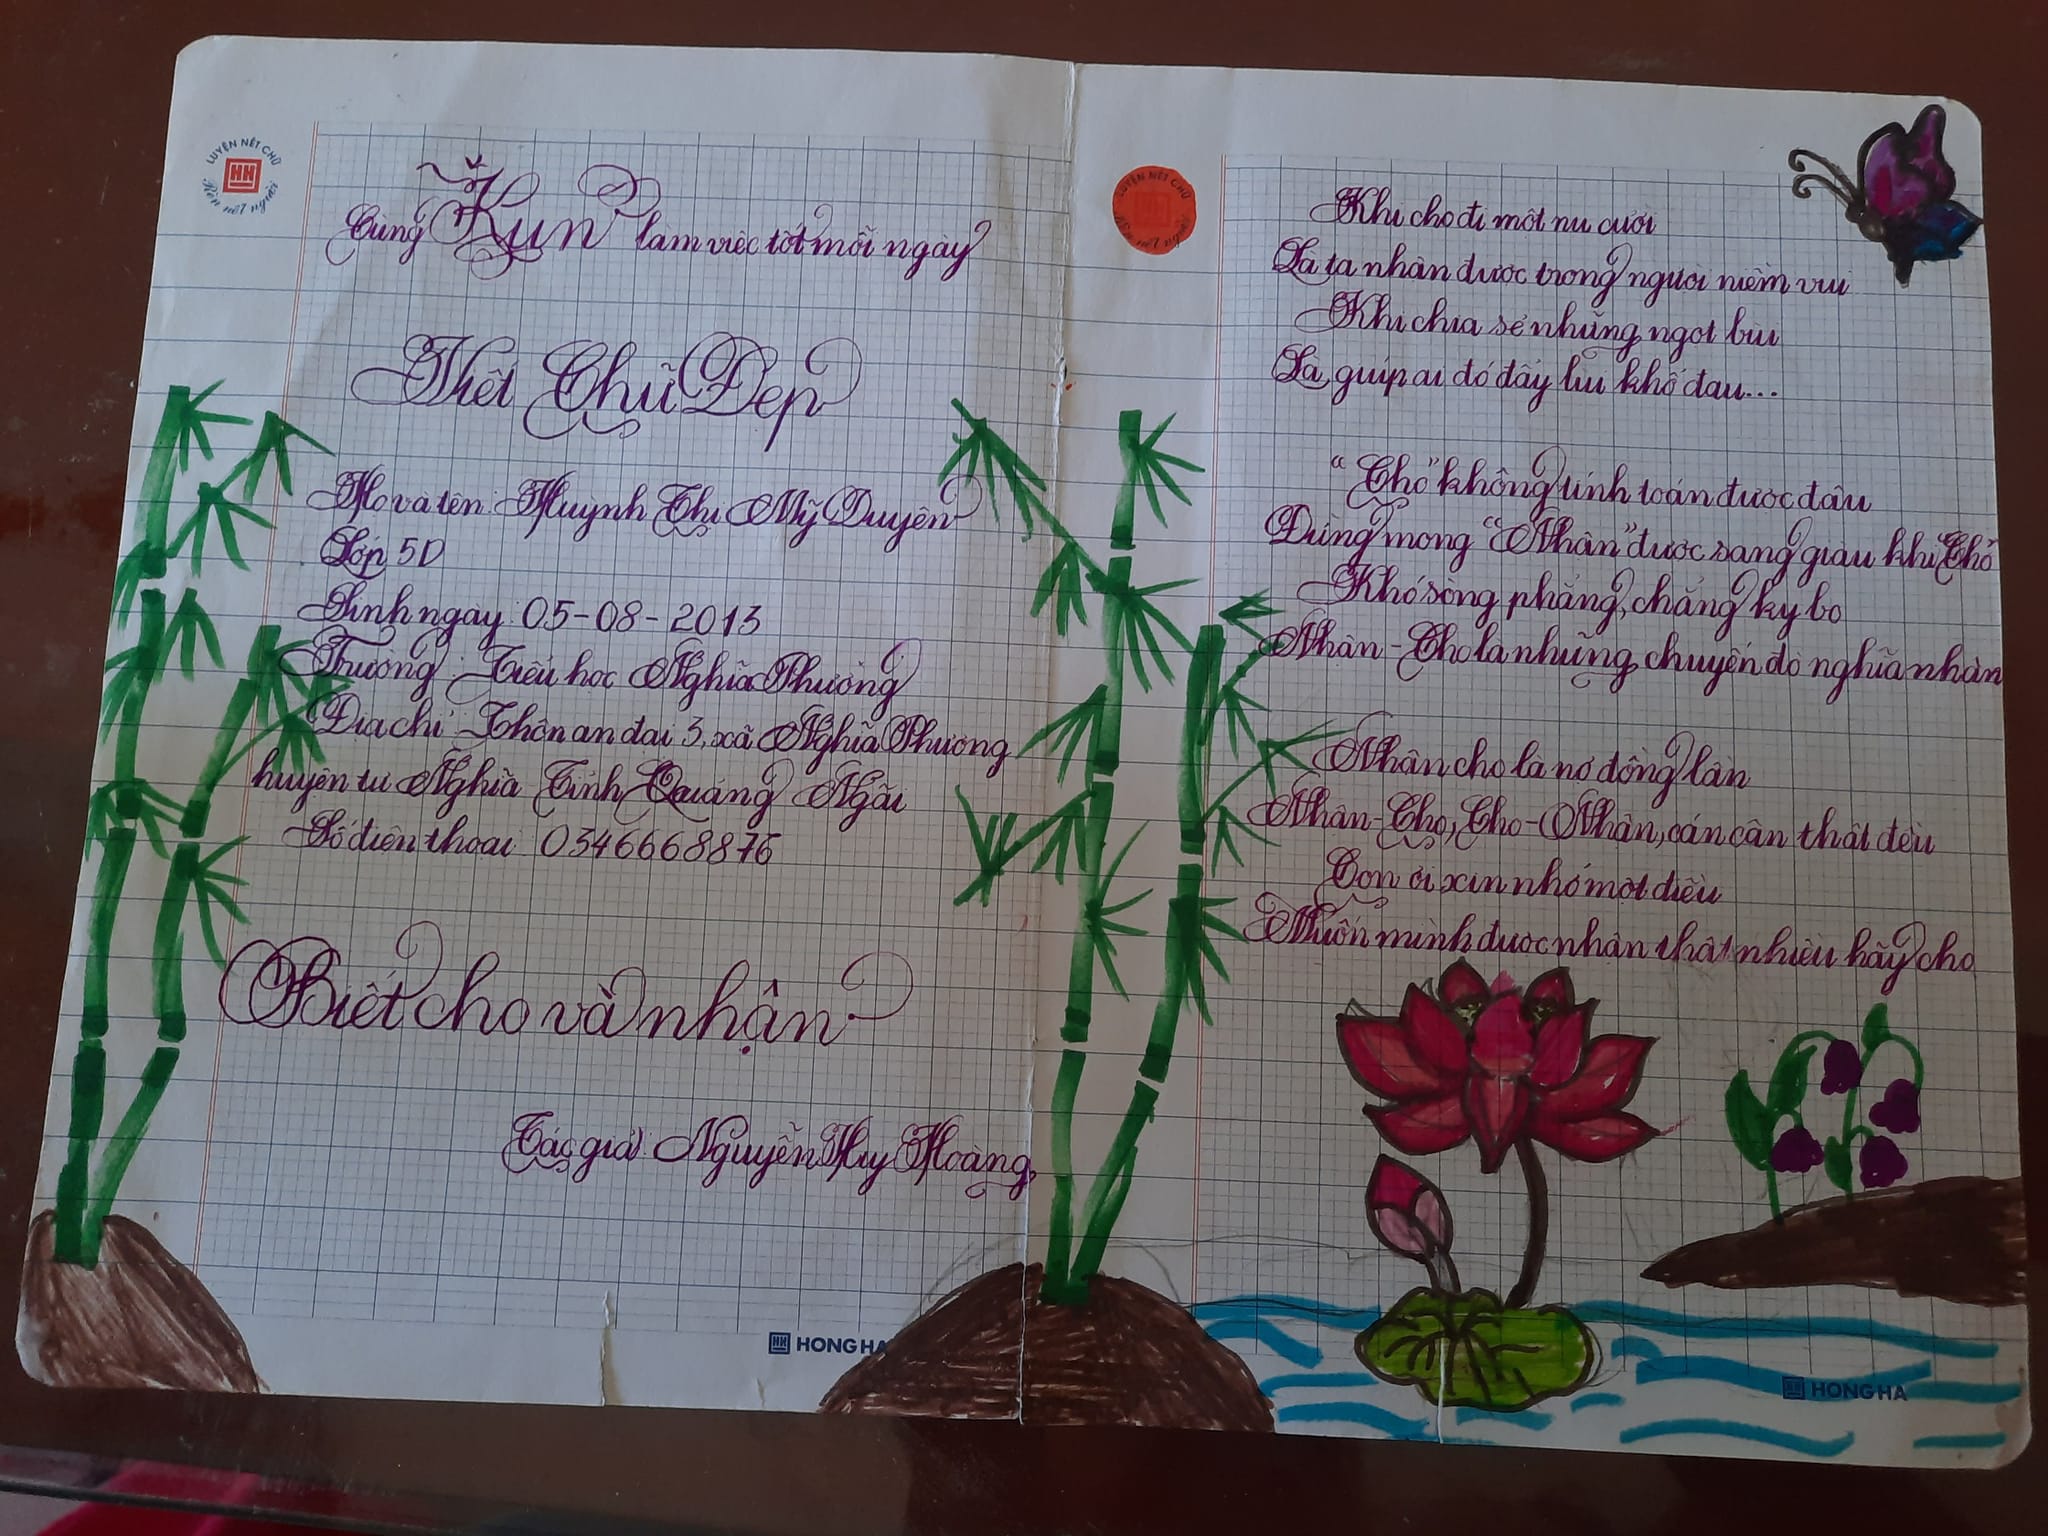 LUYỆN NÉT CHỮ
HH
Rèn nết người
Cùng Kun làm việc tốt mỗi ngày
Viết Chữ Đẹp
Họ và tên: Huỳnh Thị Mỹ Duyên
Lớp 5D
Sinh ngày: 05-08-2013
Trường: Tiểu học Nghĩa Phương
Địa chỉ: Thôn an đại 3, xã Nghĩa Phương
huyện tư Nghĩa Tỉnh Quảng Ngãi
Số điện thoại: 0346668876
Biết cho và nhận
Tác giả: Nguyễn Huy Hoàng
HH HONG HA
LUYỆN NÉT CHỮ
HH
Rèn nết người
Khi cho đi một nụ cười
Là ta nhận được trong người niềm vui
Khi chia sẻ những ngọt bùi
Là giúp ai đó đẩy lùi khổ đau...
"Cho" không tính toán được đâu
Đừng mong "Nhận" được sang giàu khi Cho
Khó sòng phẳng, chẳng kỳ bo
Nhận - Cho là những chuyến đò nghĩa nhân
Nhận cho là nợ đồng lần
Nhận - Cho, Cho - Nhận, cán cân thật đều
Con ơi xin nhớ một điều
Muốn mình được nhận thật nhiều hãy cho
HH HONG HA